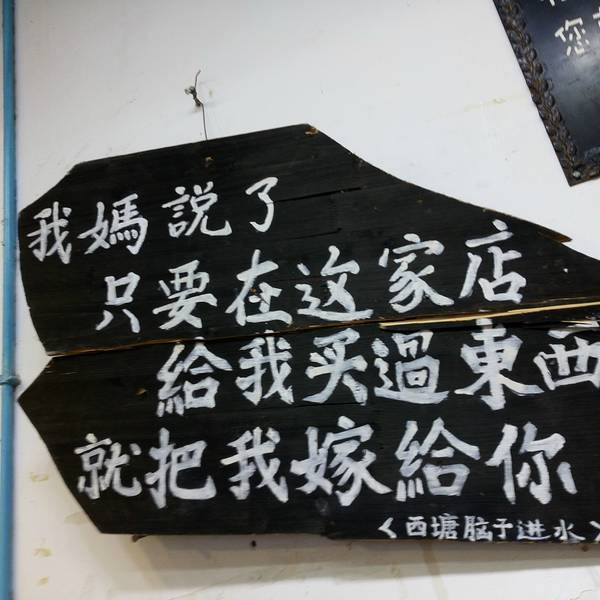 您
我媽説了
只要在这家店
給我买過東西
就把我嫁給你
<西塘脑于进水>